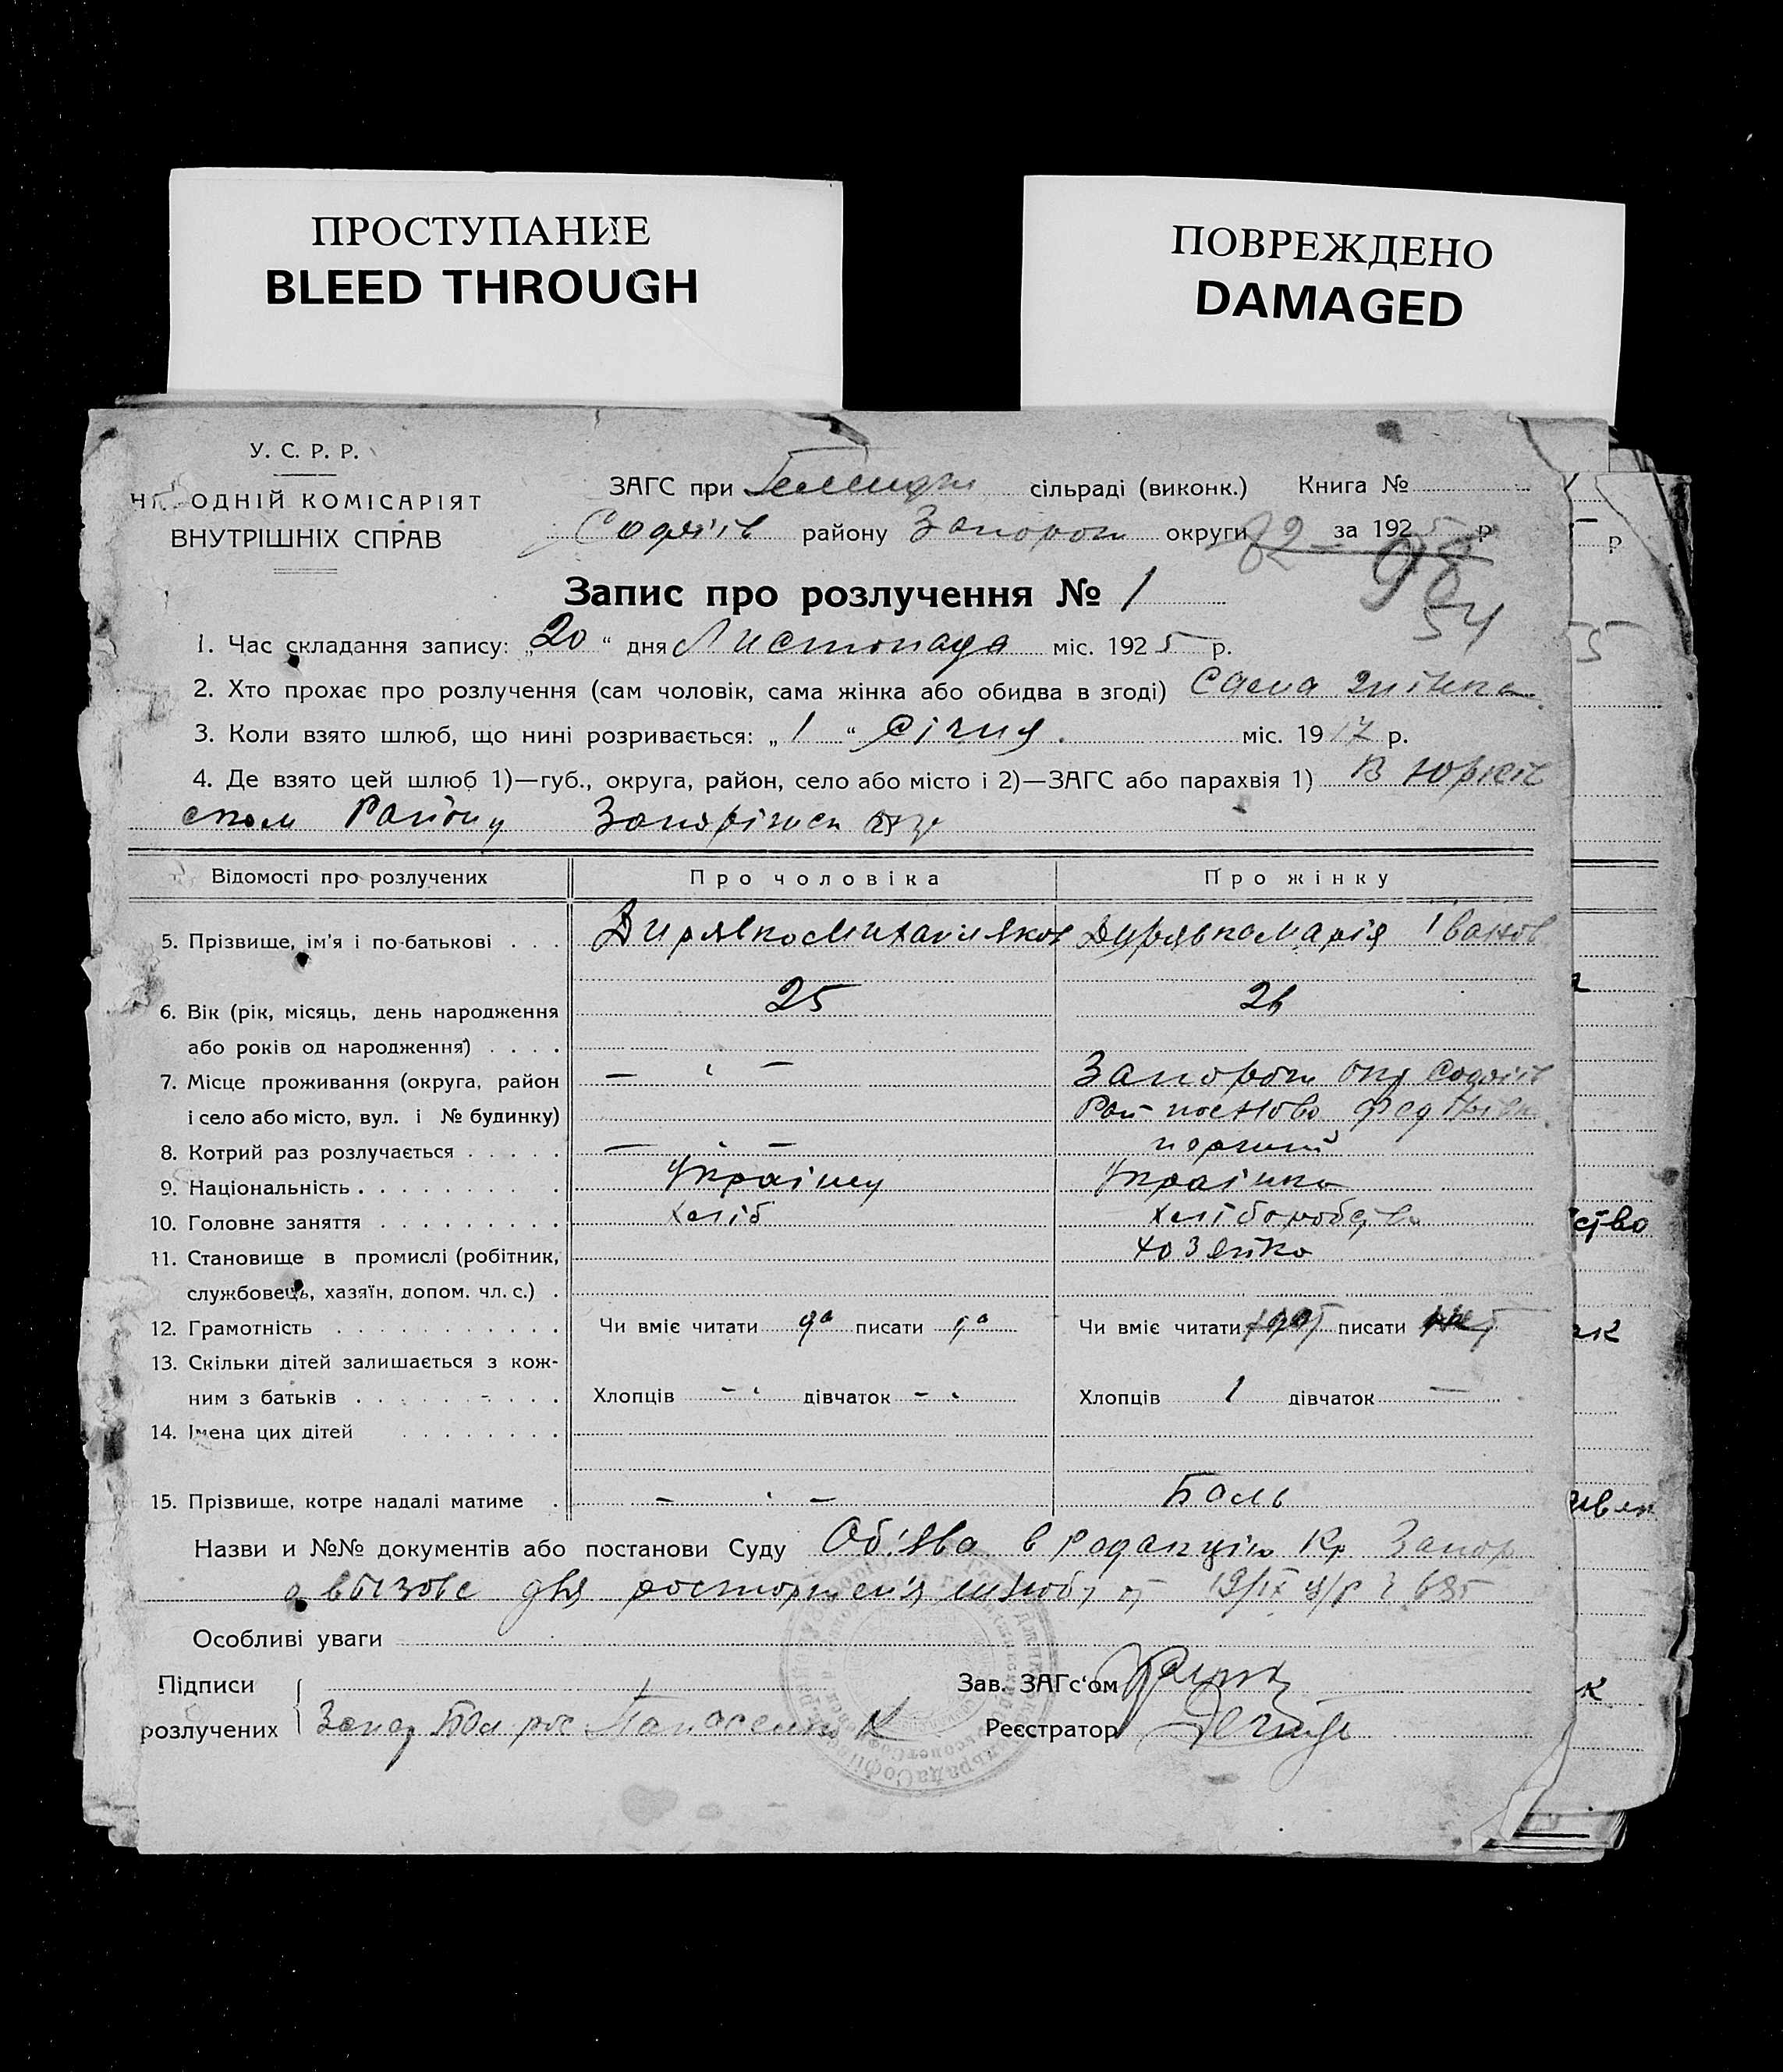 ПРОСТУПАНИЕ
BLEED THROUGH
ПОВРЕЖДЕНО
DAMAGED
У. С. Р. Р.
НАРОДНІЙ КОМІСАРІЯТ
ВНУТРІШНІХ СПРАВ
ЗАГС при сільраді (виконк.) Книга №
Софіїв району Запорож округи за 1925 р
82
98
54
Запис про розлучення № 1
1. Час складання запису: „20“ дня Листопада міс. 1925 р.
2. Хто прохає про розлучення (сам чоловік, сама жінка або обидва в згоді) Сама жінка
3. Коли взято шлюб, що нині розривається: „1“ Січня міс. 1917 р.
4. Де взято цей шлюб 1)—губ., округа, район, село або місто і 2)—ЗАГС або парахвія 1) В Юрків
ском Району Запоріжск
Відомості про розлучених Про чоловіка Про жінку
5. Прізвище, ім'я і по-батькові . . . Дирявко Михаил Яков Дурявка Марія Іванов
6. Вік (рік, місяць, день народження 25 26
або років од народження) . . . .
7. Місце проживання (округа, район — — Запорож окр Софіїв
і село або місто, вул. і № будинку) Рай
8. Котрий раз розлучається . . . . . — — перший
9. Національність . . . . . . . . . Україну Українка
10. Головне заняття . . . . . . . . . Хліб Хліборобство
11. Становище в промислі (робітник, хозяйка
службовець, хазяїн, допом. чл. с.) .
12. Грамотність . . . . . . . . . . . Чи вміє читати да писати да Чи вміє читати писати нет
13. Скільки дітей залишається з кож-
ним з батьків . . . . . - . . . . Хлопців — дівчаток — Хлопців 1 дівчаток —
14. Імена цих дітей . . . . . . . .
15. Прізвище, котре надалі матиме . — — Баль
Назви и №№ документів або постанови Суду Об'ява в редакцію Кр Запор
о вызове для расторжен'я шлюбу от 19/IX
Особливі уваги
Підписи Зав. ЗАГс'ом
розлучених Реєстратор